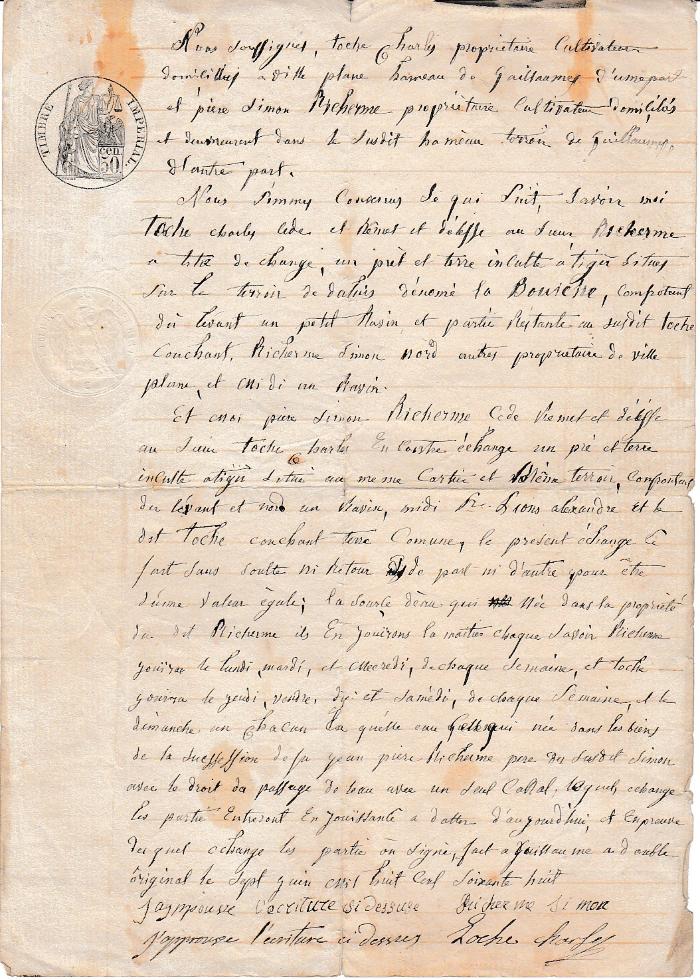 TIMBRE IMPERIAL
50 cen
Nous soussignes, toche Charles propriétaire Cultivateur
domicilliés a ville plane hameau de Guillaumes d'une part
et pière Simon Richerme propriétaire Cultivateur domiciliés
et demeurent dans le susdit hameau terroir de Guillaumes,
d'autre part.
Nous sommes Convenus Se qui Suit, Savoir moi
toche charles Cede et Remet et délésse au sieur Richerme
a titre de change, un prèt et terre inculte atigër situes
sur le terroir de daluis dénomé la Boureire, Comfrontent
du levant un petit Ravin et partie Restante au susdit toche
Couchant, Richerme Simon nord autres propriétaire de ville
plane, et midi un Ravin.
Et moi pière Simon Richerme Cede Remet et délésse
au sieur toche charles En Contre échange un pré et terre
inculte atigër situé au meme Cartier et Même terroir, Confrontant
du lévant et nord un Ravin, midi Lions alexandre et le
dit toche couchant terre Comune, le present échange Ce
fait Sans soulte ni Retour de part ni d'autre pour être
d'eune valeur égale; la source d'eau qui née dans la propriété
du dit Richerme ils En jouirons la moitier chaque Savoir Richerme
jouira le lundi, mardi, et Mecredi, de chaque Semaine, et toche
jouira le jeudi, vendre, di et Samédi, de chaque Semaine, et le
démanche un Chacun la quélle eau qui née dans les biens
de la Suessession de fu jean pière Richerme pere du susdit Simon
avec le droit du passage de l'eau avec un seul Caltal, lequels echange
les partié Entreront En jouissante a datter d'aujourd'hui, et En preuve
duquel echange les partie on Signé, fait a Guillaume a double
original le Sept juin mil huit Cent Soixante huit
J'approuve l'ecriture si desure Richerme Simon
J'approuve l'écriture ci dessus Toche charles